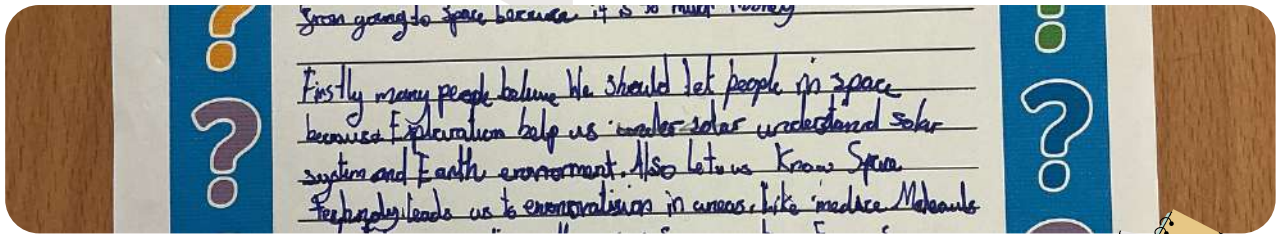 from going to space because it is so much money
Firstly many people believe We should let people in space
because Exploration help us under solar understand solar
system and Earth enviroment. Also let us Know Space
Technoly leads us to in areas. Like